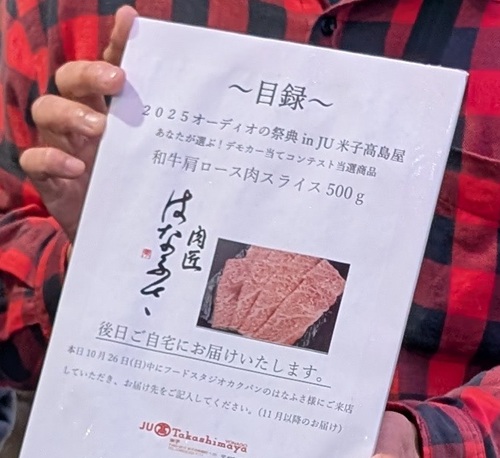 ～目録～
2025オーディオの祭典 in JU 米子髙島屋
あなたが選ぶ！デモカー当てコンテスト当選商品
和牛肩ロース肉スライス 500g
肉匠
はなふさ
後日ご自宅にお届けいたします。
本日10月26日(日)中にフードスタジオカクバンのはなふさ様にご来店
していただき、お届け先をご記入してください。(11月以降のお届け)
JU 髙 Takashimaya